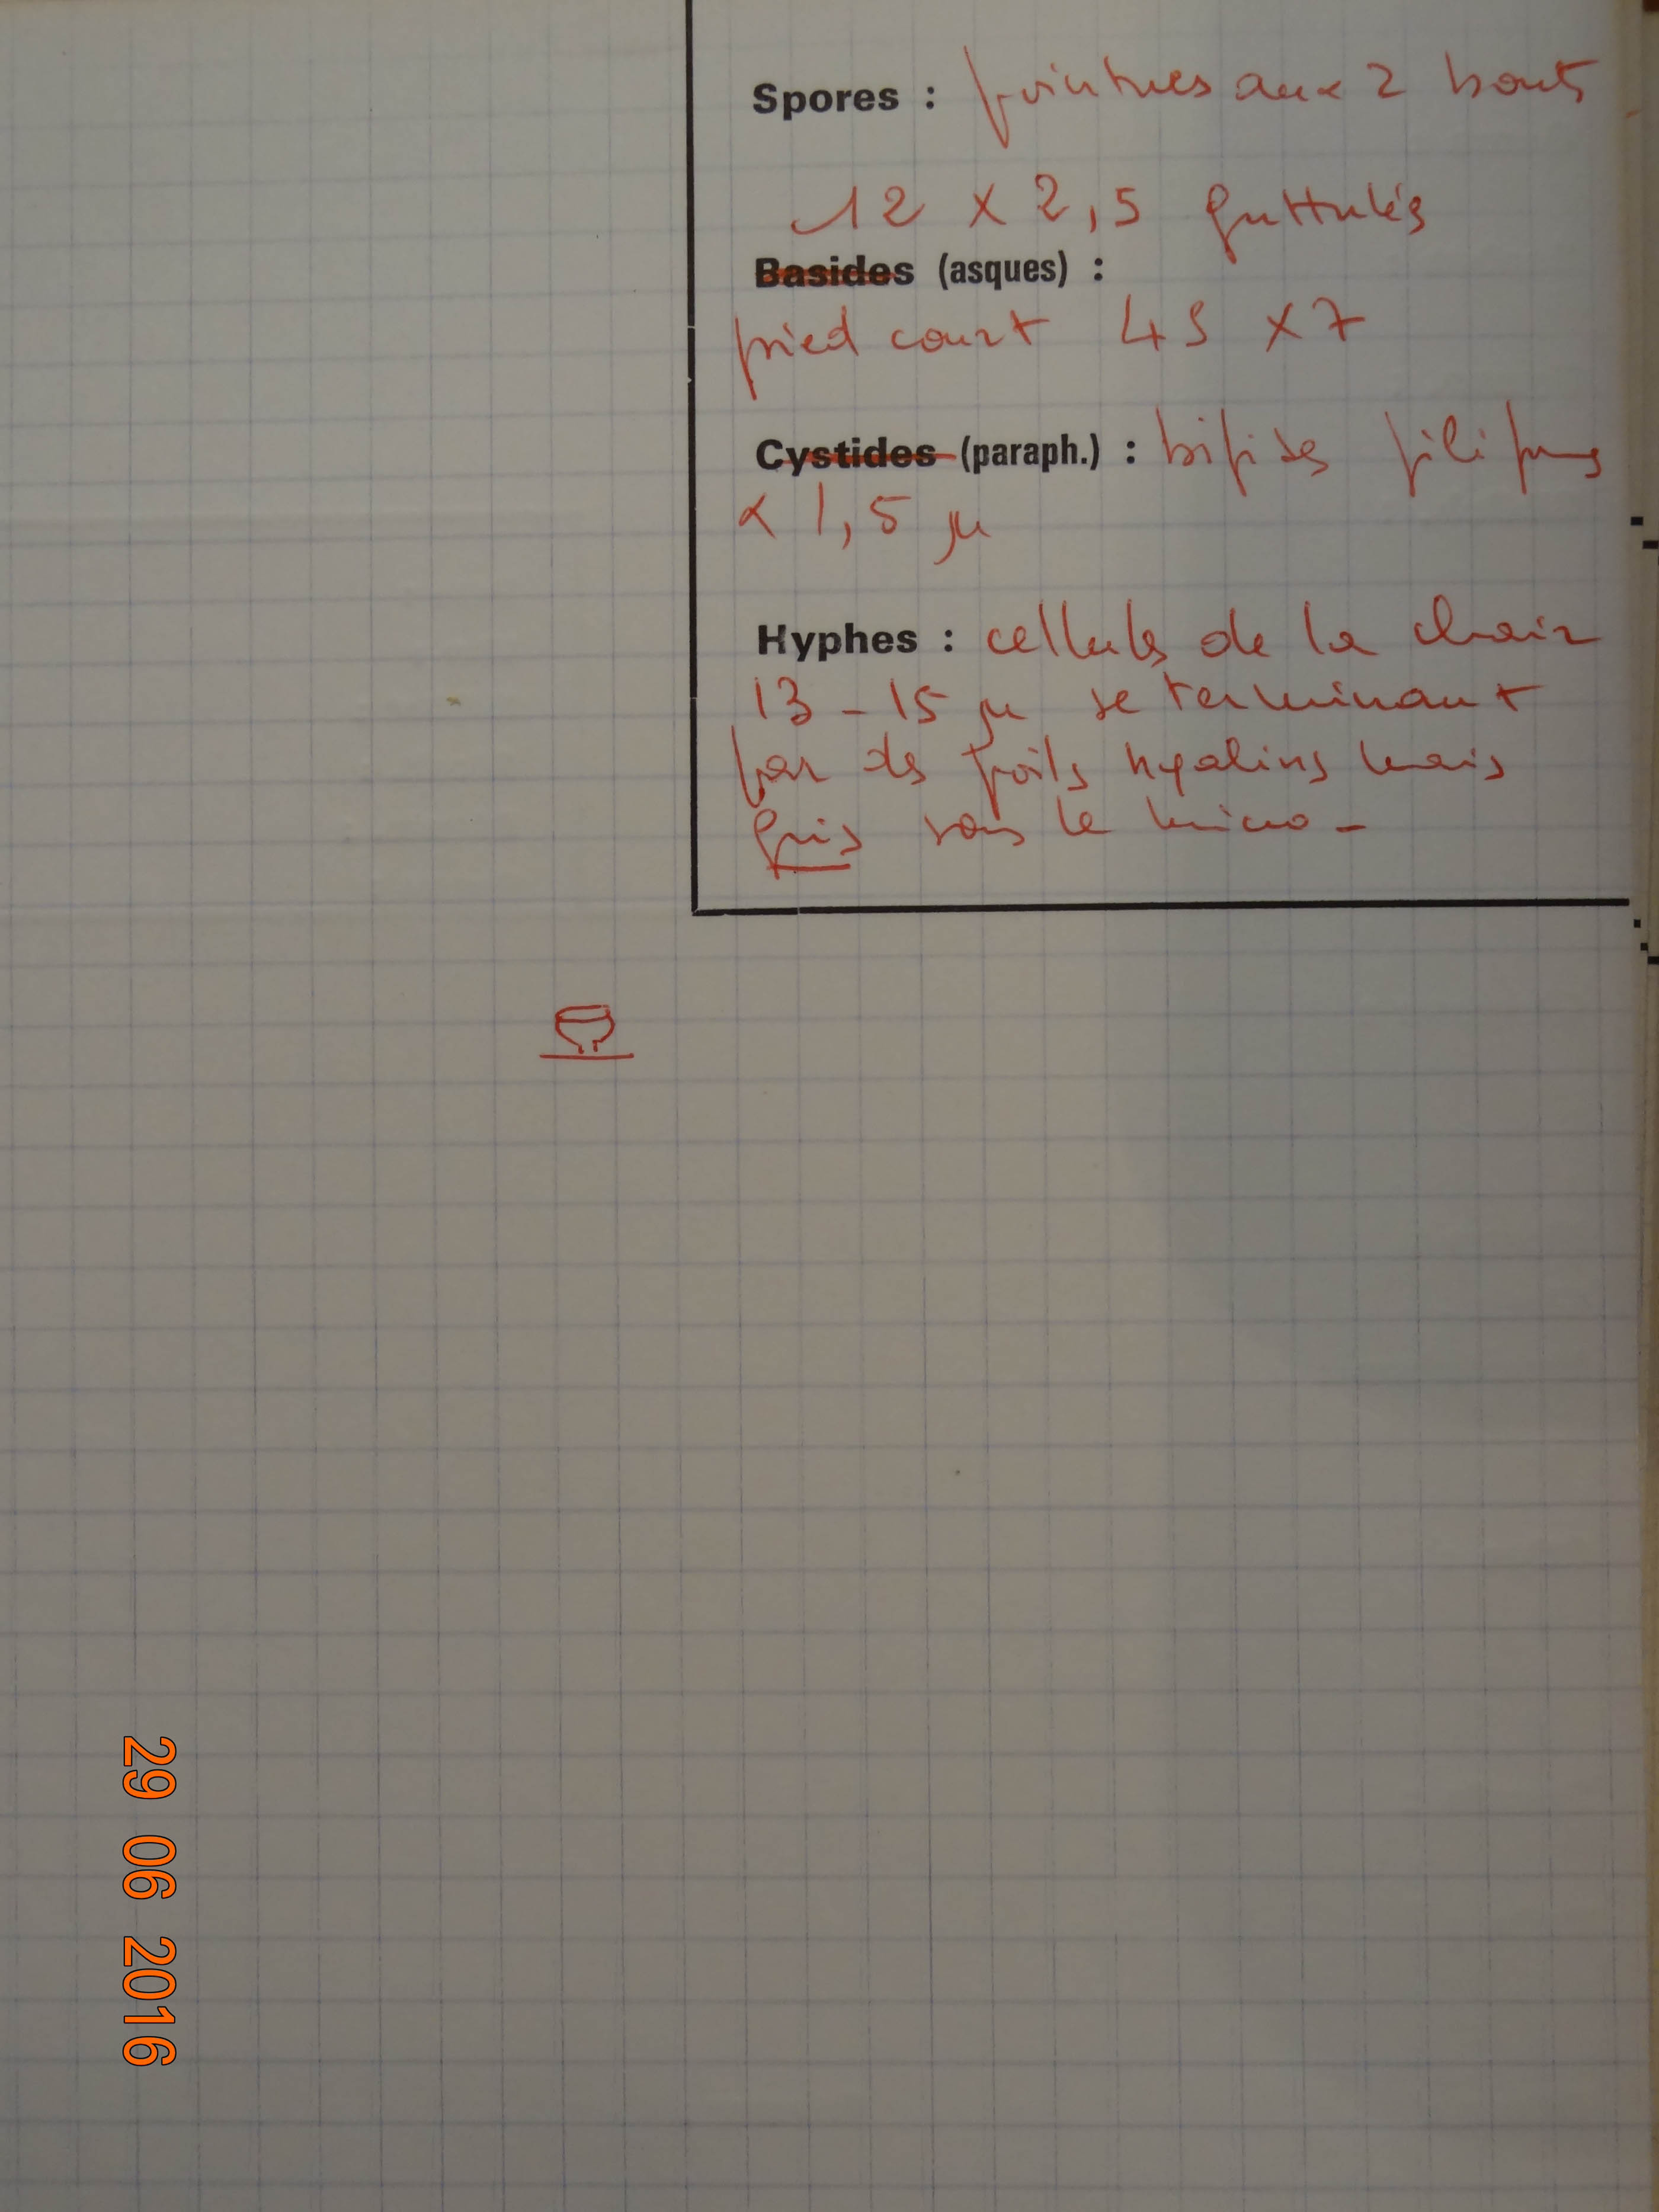 Spores : pointues aux 2 bouts
12 x 2,5 guttulés
Basides (asques) :
pied court 45 x 7
Cystides (paraph.) : bifides filiformes
< 1,5 µ
Hyphes : cellules de la chair
13 - 15 µ se terminant
par des poils hyalins mais
gris sous le micro -
29 06 2016